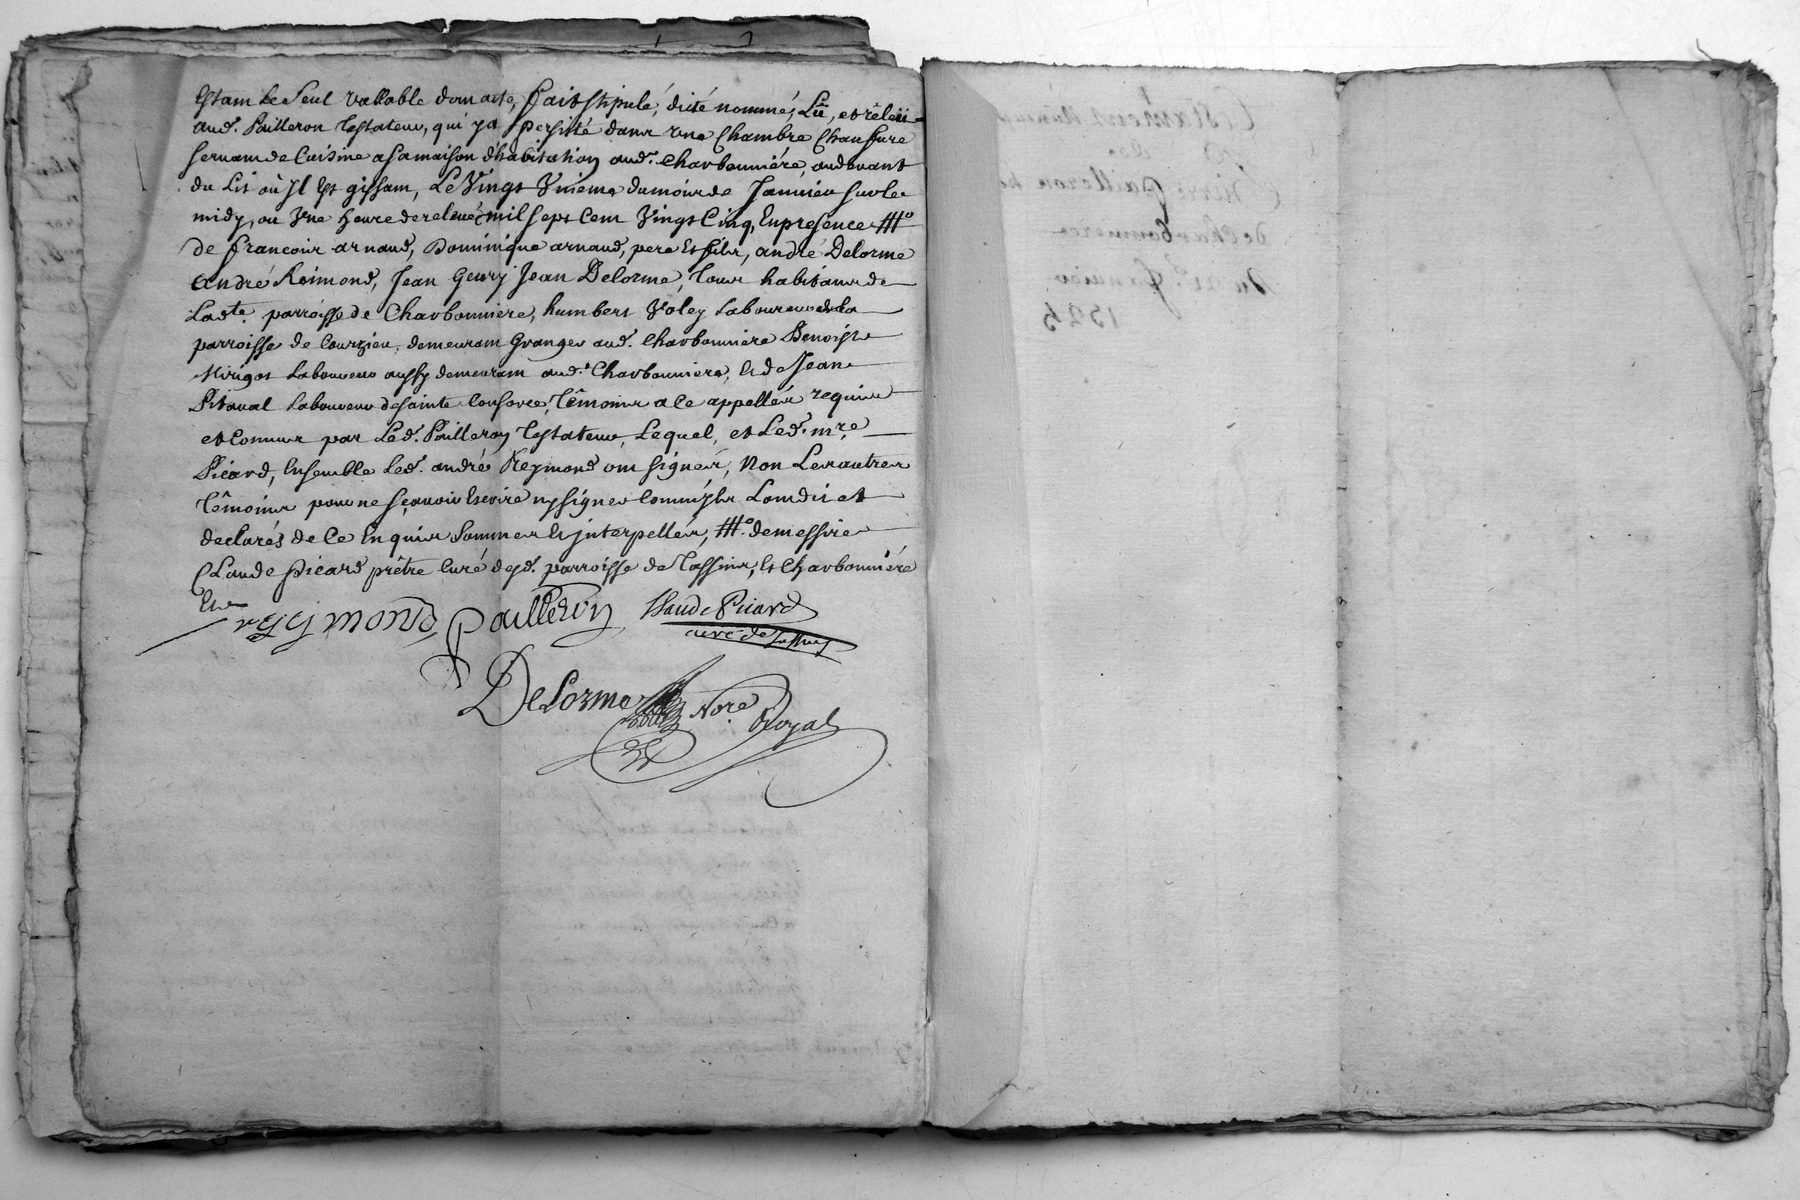 Estam Le Seul Vallable dom acte, fait stipulé, dicté nommé, Lû, et rêleü
aud. Pailleron testateur, qui ya persisté dans une Chambre Chaufure
servam de Cuisine a sa maison d'habitation aud. Charbonniére, au devant
du Lit où Jl Est gissam, Le Vingt Vnieme du mois de Janvier sur le
midy, ou Vne heure de relevé mil sept cem Vingt Cinq, En presence #o
de francois arnaud, Dominique arnaud, pere Et fils, andré Delorme
andré Reimond, Jean Geury Jean Delorme, tous habitans de
Ladte. parroisse de Charbonniere, humbert Voley Laboureur de la
parroisse de Courzieu, demeuram Granger aud. Charbonniere Benoist
Mirigot Laboureur aussy demeuram aud. Charbonniere, Et de Jean
Pitaval Laboureur de sainte Consorce, têmoins a ce appellés requis
et Connus par Led. Pailleron testateur, Lequel, et Led. mre.
Picard, Ensemble Led. andré Reymond om signés, Non Les autres
têmoins pour ne sçavoir Escrire ny signer Comm'jls L'om dit et
declarés de Ce Enquis sommés Et jnterpellés, #o. de messire
Claude Picard prêtre Curé desd. parroisse de Tassins, Et Charbonniére
reymond Pailleron Claude Picard
curé de Tassins
DeLorme Nore Royal
Testament
Pierre Pailleron
de Charbonniere
Du 21e Janvier
1725